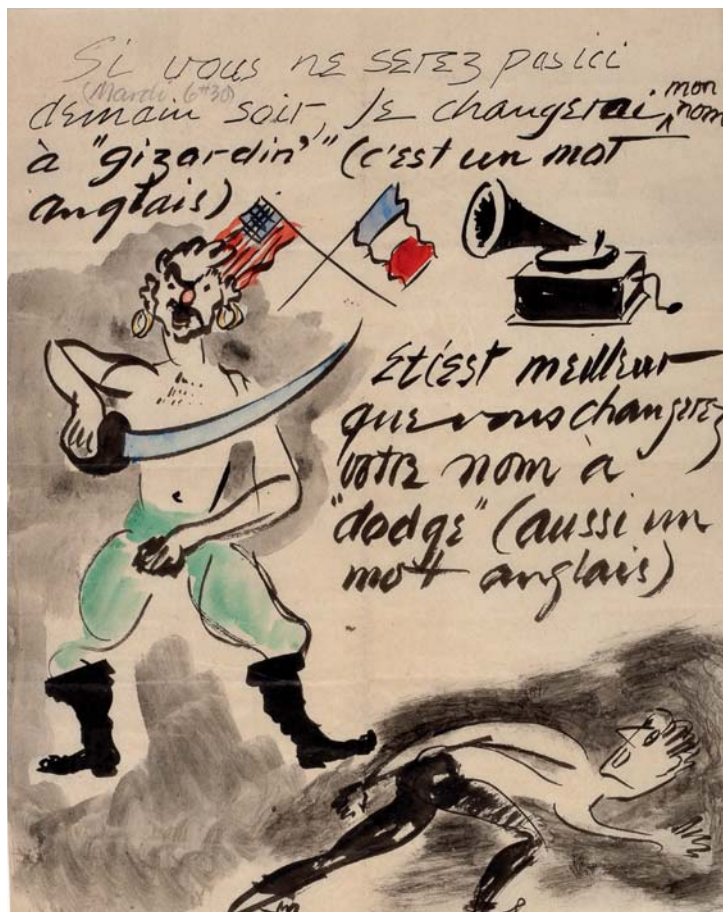 Si vous ne serez pas ici
(Mardi 6h30)
demain soir, je changerai mon nom
à "gizardin" (c'est un mot
anglais)
Et c'est meilleur
que vous changerez
votre nom à
"dodge" (aussi un
mott anglais)